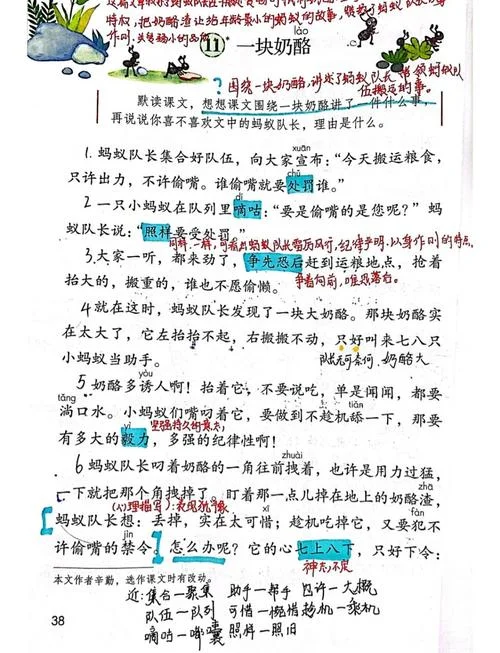 特权,把奶酪渣让给年龄最小的蚂蚁的故事,
11* 一块奶酪
lào
围绕一块奶酪,讲述了蚂蚁队长带领蚂蚁队
伍搬运的事。
默读课文,想想课文围绕一块奶酪讲了一件什么事,
再说说你喜不喜欢文中的蚂蚁队长,理由是什么。
xuān
1.蚂蚁队长集合好队伍,向大家宣布:“今天搬运粮食,
chǔ
只许出力,不许偷嘴。谁偷嘴就要处罚谁。”
2一只小蚂蚁在队列里嘀咕:“要是偷嘴的是您呢?”蚂
蚁队长说:“照样要受处罚。”
同样,一样,可看出蚂蚁队长严厉风行,纪律严明,以身作则的特点。
3.大家一听,都来劲了,争先恐后赶到运粮地点,抢着
抬大的,搬重的,谁也不愿偷懒。
争着向前,唯恐落后。
4就在这时,蚂蚁队长发现了一块大奶酪。那块奶酪实
在太大了,它左抬抬不起,右搬搬不动,只好叫来七八只
小蚂蚁当助手。
奶酪大
yòu
5奶酪多诱人啊!抬着它,不要说吃,单是闻闻,都要
tǎng
淌口水。小蚂蚁们嘴叼着它,要做到不趁机舔一下,那要
tiǎn
yì
坚强持久的意志
有多大的毅力,多强的纪律性啊!
zhuài
6蚂蚁队长叼着奶酪的一角往前拽着,也许是用力过猛,
一下就把那个角拽掉了。盯着那一点儿掉在地上的奶酪渣,
zhā
蚂蚁队长想:丢掉,实在太可惜;趁机吃掉它,又要犯不
jìn
许偷嘴的禁令。怎么办呢?它的心七上八下,只好下令:
神志不定
本文作者辛勤,选作课文时有改动。
近:集合—聚集 助手—帮手 也许—大概
队伍—队列 可惜—惋惜 趁机—乘机
嘀咕—嘟囔 照样—照旧
38